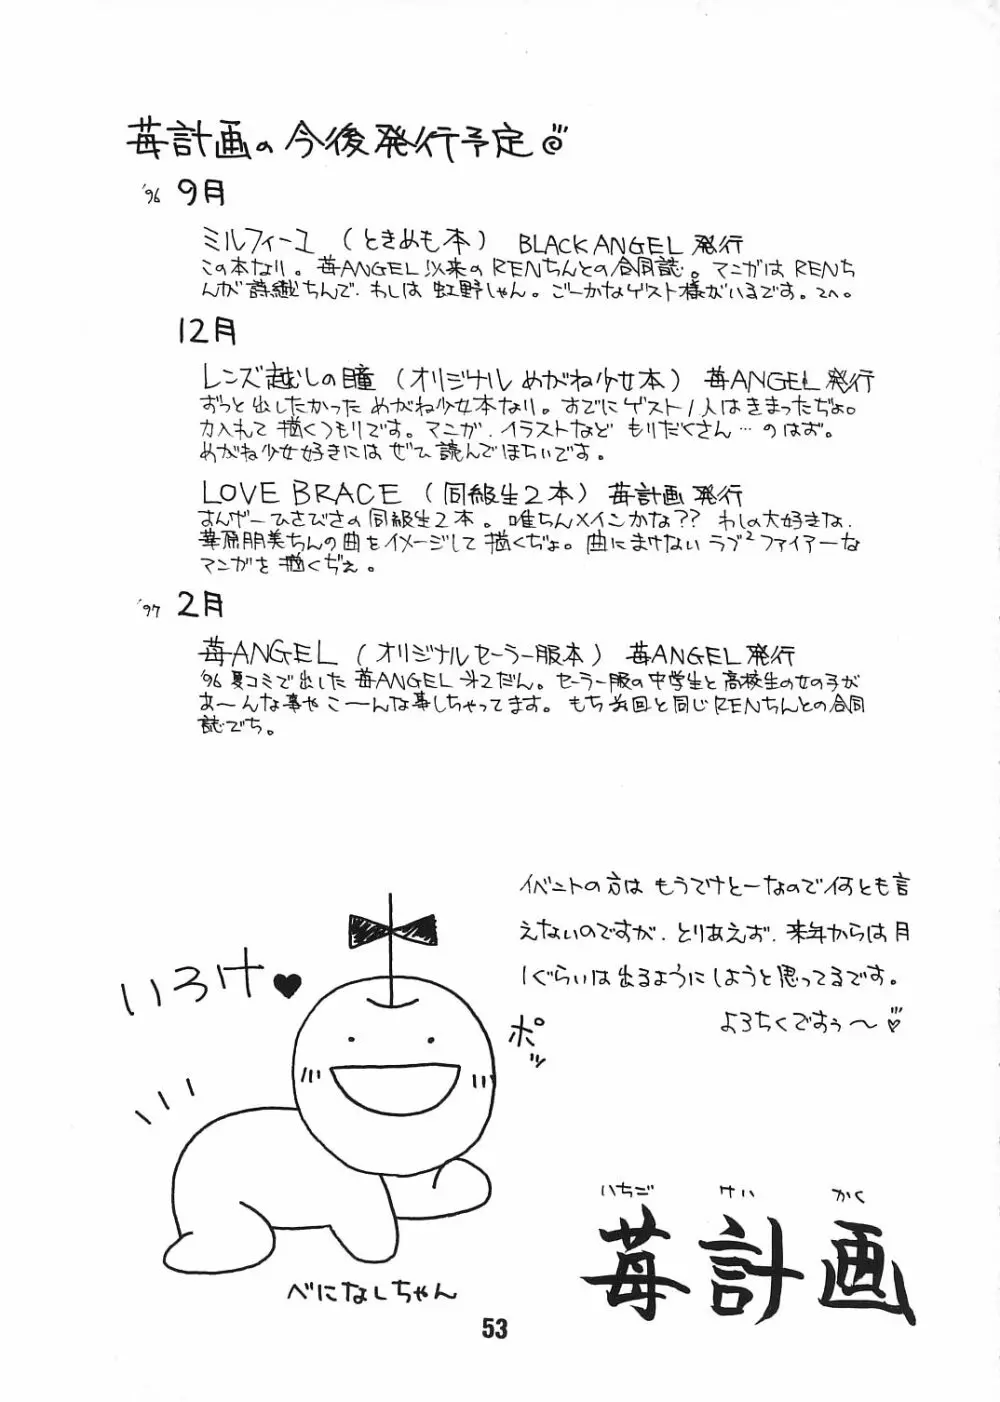 苺計画の今後発行予定
'96 9月
ミルフィーユ (ときめも本) BLACK ANGEL 発行
この本なり。苺ANGEL以来のRENちんとの合同誌。マンガはRENち
んが詩織ちんで、わしは虹野しゃん。ごーかなゲスト様がいるです。
12月
レンズ越しの瞳 (オリジナルめがね少女本) 苺ANGEL発行
ずっと出したかっためがね少女本なり。すでにゲスト1人はきまったぢょ。
力入れて描くつもりです。マンガ、イラストなどもりだくさん…のはず。
めがね少女好きにはぜひ読んでほちいです。
LOVE BRACE (同級生2本) 苺計画発行
すんげーひさびさの同級生2本。唯ちんメインかな?? わしの大好きな、
華原朋美ちんの曲をイメージして描くぢょ。曲にまけないラブ²ファイアーな
マンガを描くぢぇ。
'97 2月
苺ANGEL (オリジナルセーラー服本) 苺ANGEL発行
'96夏コミで出した苺ANGEL 第2だん。セーラー服の中学生と高校生の女の子が
あ〜んな事やこ〜んな事しちゃってます。もち前回と同じRENちんとの合同
誌でち。
イベントの方はもうてけとーなので何とも言
えないのですが、とりあえず、来年からは月
1ぐらいは出るようにしようと思ってるです。
よろちくですぅ〜
いろけ♥
ポッ
べになしちゃん
いちご けい かく
苺計画
53